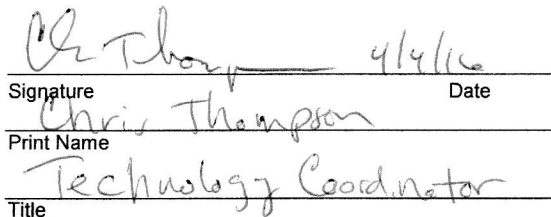 Ch Thomp 4/4/16
Signature Date
Chris Thompson
Print Name
Technology Coordinator
Title